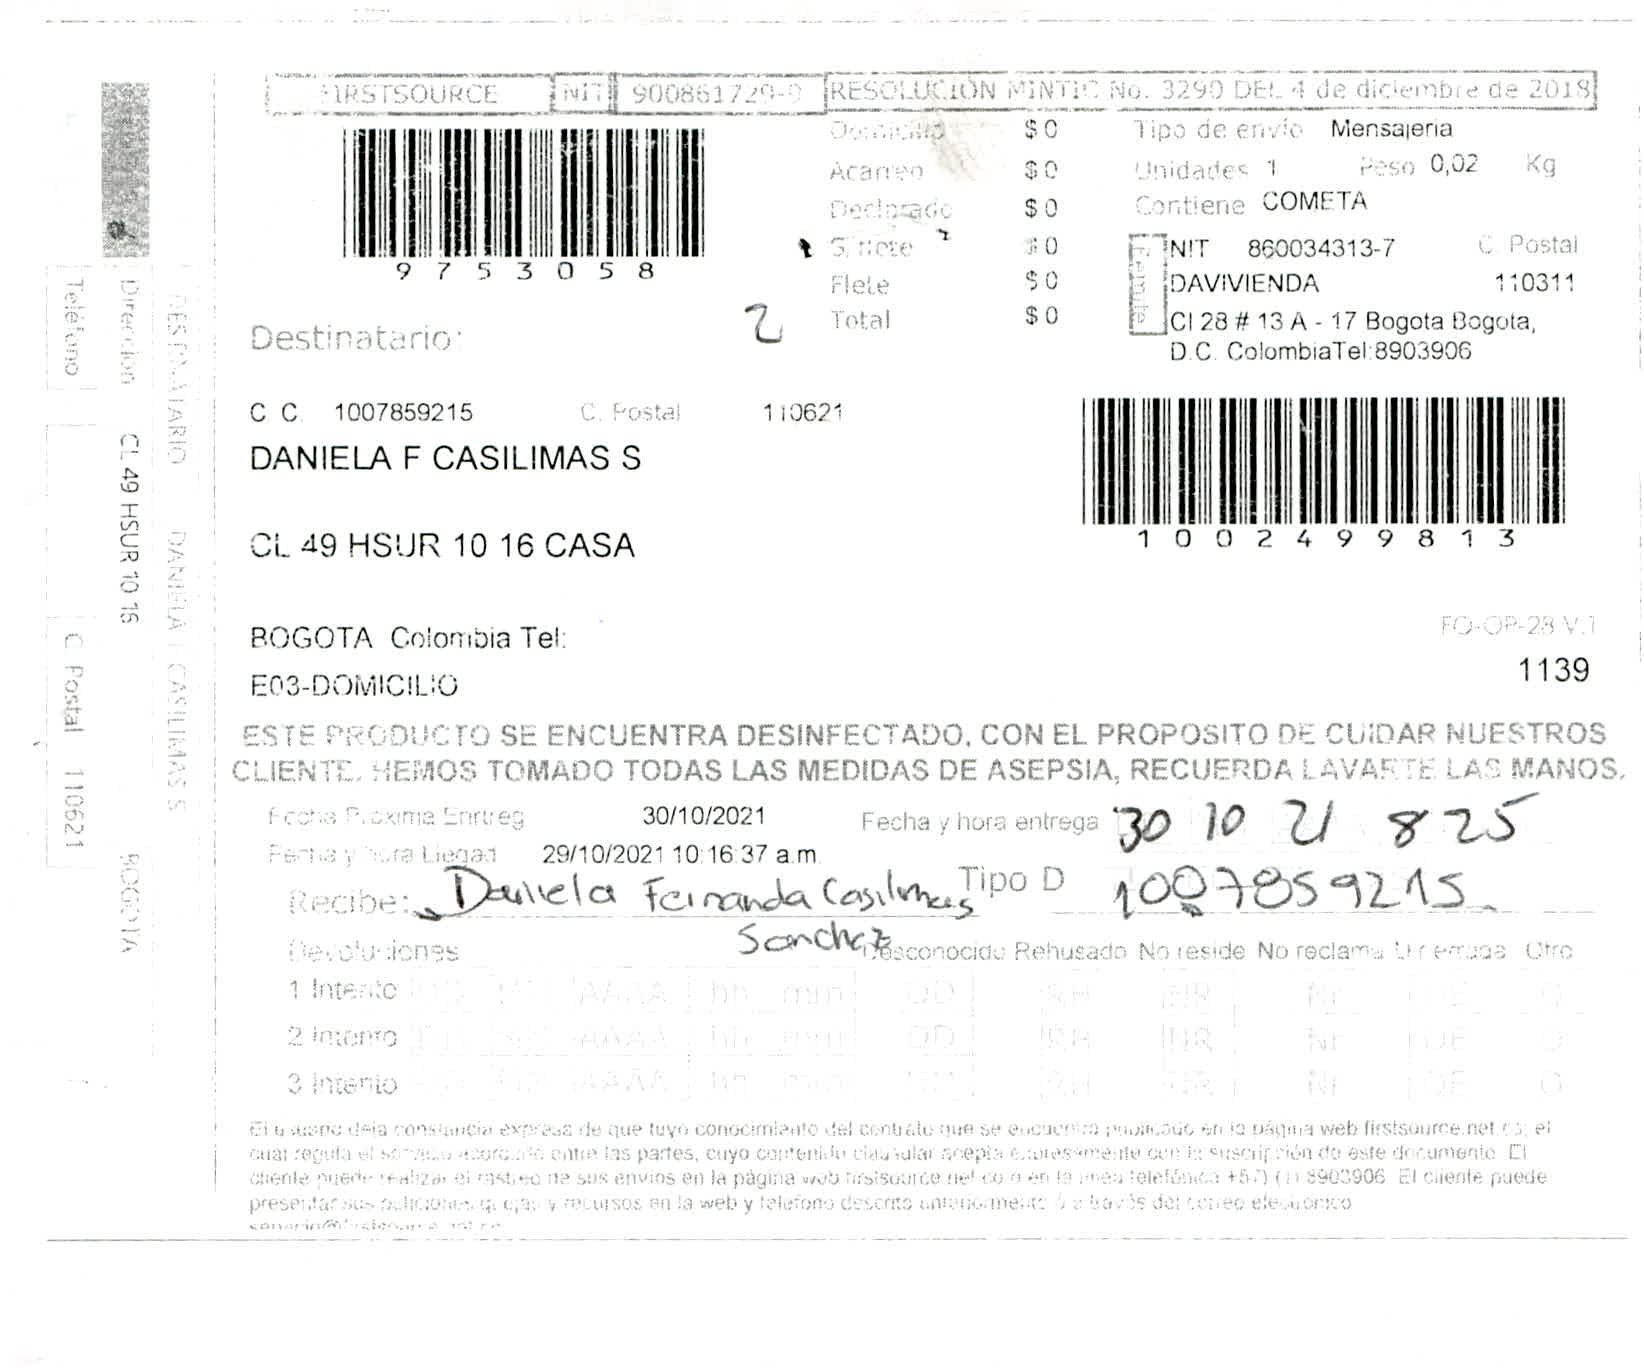 FIRSTSOURCE NIT 900861729-0 RESOLUCIÓN MINTIC No. 3290 DEL 4 de diciembre de 2018
9753058
Domicilio $ 0
Acarreo $ 0
Declarado $ 0
$ 0
Flete $ 0
Total $ 0
2
Tipo de envío Mensajeria
Unidades 1 Peso 0,02 Kg
Contiene COMETA
Remite
NIT 860034313-7 C. Postal
DAVIVIENDA 110311
Cl 28 # 13 A - 17 Bogota Bogota,
D.C. ColombiaTel:8903906
1002499813
Destinatario:
C C. 1007859215 C. Postal 110621
DANIELA F CASILIMAS S
CL 49 HSUR 10 16 CASA
BOGOTA Colombia Tel:
E03-DOMICILIO
FO-OP-28 V.1
1139
ESTE PRODUCTO SE ENCUENTRA DESINFECTADO, CON EL PROPOSITO DE CUIDAR NUESTROS
CLIENTE. HEMOS TOMADO TODAS LAS MEDIDAS DE ASEPSIA, RECUERDA LAVARTE LAS MANOS.
Fecha Proxima Entreg 30/10/2021 Fecha y hora entrega 30 10 21 8 25
Fecha y hora Llegad 29/10/2021 10:16:37 a.m.
Recibe: Daniela Fernanda Casilimas Tipo D 1007859215
Sanchez
Devoluciones Desconocido Rehusado No reside No reclama Otro
1 Intento AAAA hh mm DD RH NR Nr DE O
2 Intento AAAA hh mm DD RH NR Nr DE O
3 Intento AAAA hh mm RH NR Nr DE O
El usuario deja constancia expresa de que tuvo conocimiento del contrato que se encuentra publicado en la página web firstsource.net.co; el
cual regula el servicio acordado entre las partes, cuyo contenido clausular acepta expresamente con la suscripción de este documento. El
cliente puede realizar el rastreo de sus envios en la página web firstsource.net.co o en la linea telefónica +57) (1) 8903906 El cliente puede
presentar sus peticiones, quejas y recursos en la web y telefono descrito anteriormente ó a través del correo electronico
Teléfono C Postal 110621
Direccion CL 49 HSUR 10 16 BOGOTA
DESTINATARIO DANIELA F CASILIMAS S